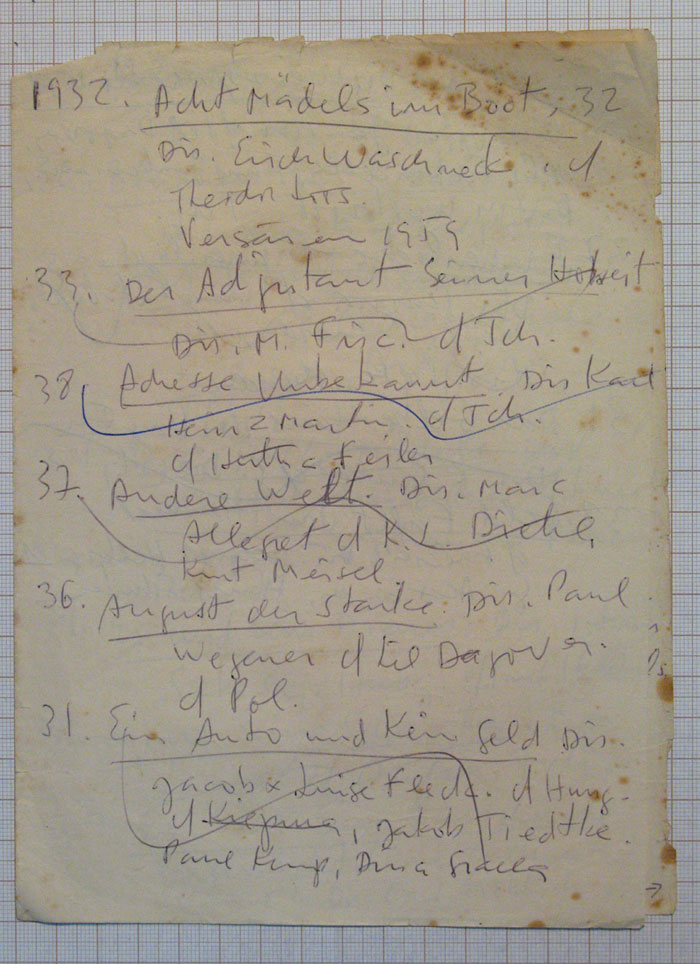 1932. Acht Mädels im Boot, 32
Dis. Erich Waschneck. d
Theodor Loos.
Versionen 1959
33. Der Adjutant Seiner Hoheit
Dis. M. Fric. d Tch.
38. Adresse Unbekannt Dis Karl
Heinz Martin. d Tch.
d Hertha Feiler
37. Andere Welt. Dis. Marc
Allegret d K. L. Diehl,
Kurt Meisel.
36. August der Starke. Dis. Paul
Wegener d Lil Dagover.
d Pol.
31. Ein Auto und Kein Geld Dis.
Jacob x Luise Fleck. d Hung.
d Kiepura, Jakob Tiedtke.
Paul Kemp, Dina Gralla